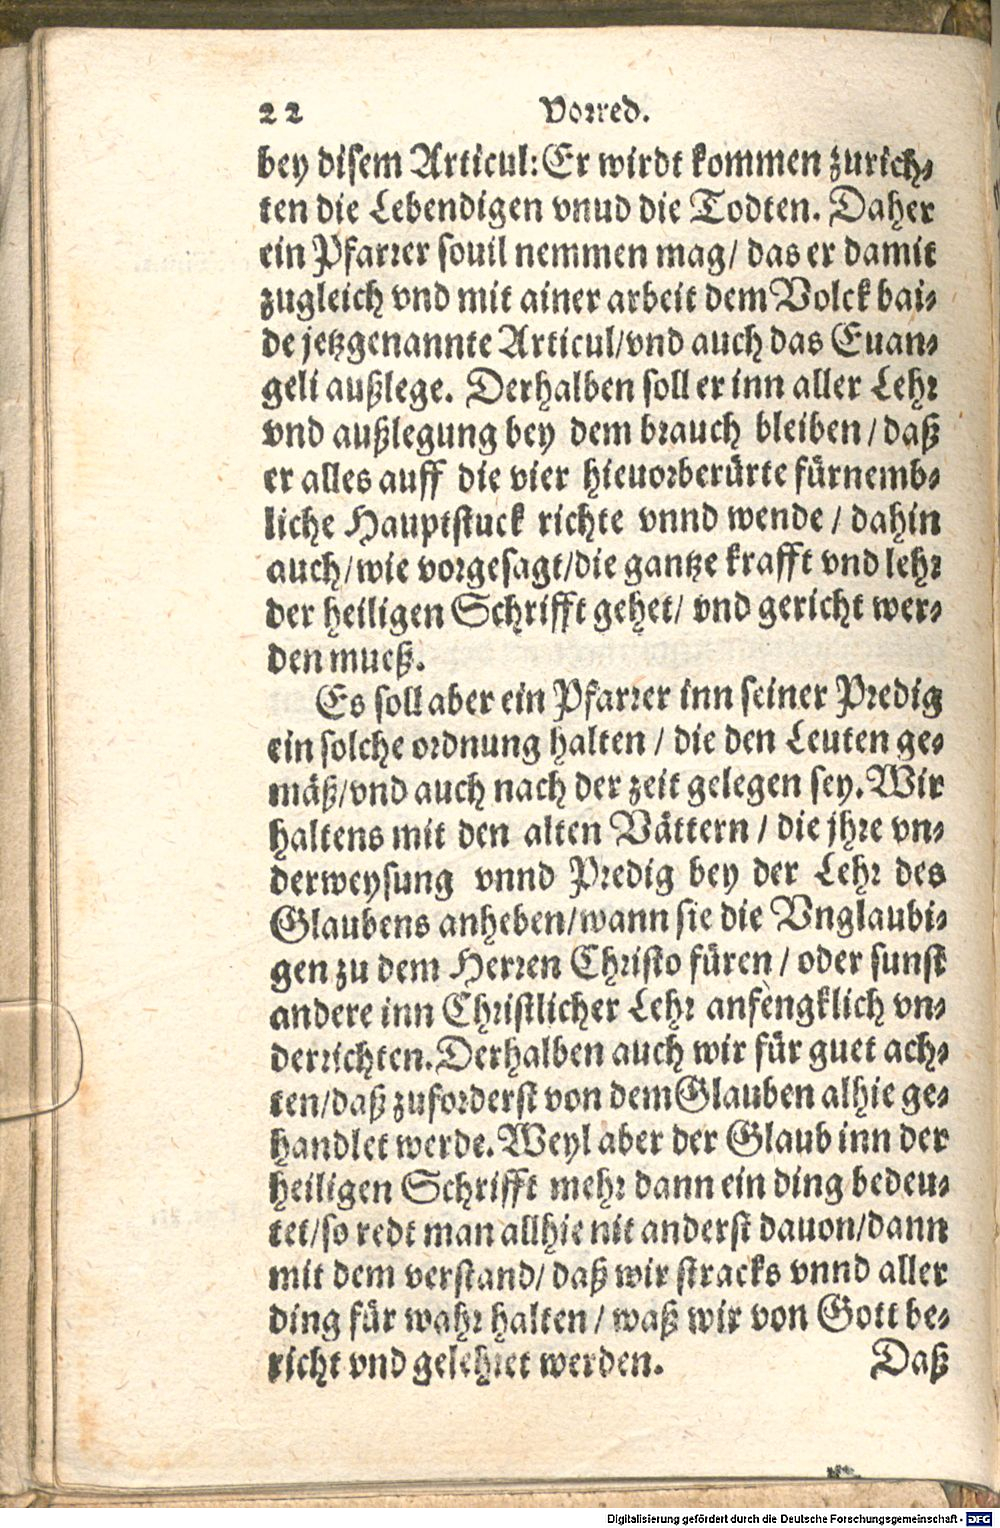 22 Vorred.
bey disem Articul: Er wirdt kommen zurich-
ten die Lebendigen vnud die Todten. Daher
ein Pfarrer souil nemmen mag/ das er damit
zugleich vnd mit ainer arbeit dem Volck bai-
de jetzgenannte Articul/vnd auch das Euan-
geli außlege. Derhalben soll er inn aller Lehr
vnd außlegung bey dem brauch bleiben/ daß
er alles auff die vier hieuorberürte fürnemb-
liche Hauptstuck richte vnnd wende/ dahin
auch/wie vorgesagt/die gantze krafft vnd lehr
der heiligen Schrifft gehet/ vnd gericht wer-
den mueß.
Es soll aber ein Pfarrer inn seiner Predig
ein solche ordnung halten/ die den Leuten ge-
mäß/vnd auch nach der zeit gelegen sey. Wir
haltens mit den alten Vättern/ die jhre vn-
derweysung vnnd Predig bey der Lehr des
Glaubens anheben/wann sie die Vnglaubi-
gen zu dem Herren Christo füren/ oder sunst
andere inn Christlicher Lehr anfèngklich vn-
derrichten. Derhalben auch wir für guet ach-
ten/daß zuforderst von dem Glauben alhie ge-
handlet werde. Weyl aber der Glaub inn der
heiligen Schrifft mehr dann ein ding bedeu-
tet/so redt man allhie nit anderst dauon/dann
mit dem verstand/ daß wir stracks vnnd aller
ding für wahr halten/ waß wir von Gott be-
richt vnd gelehret werden. Daß
Digitalisierung gefördert durch die Deutsche Forschungsgemeinschaft - DFG